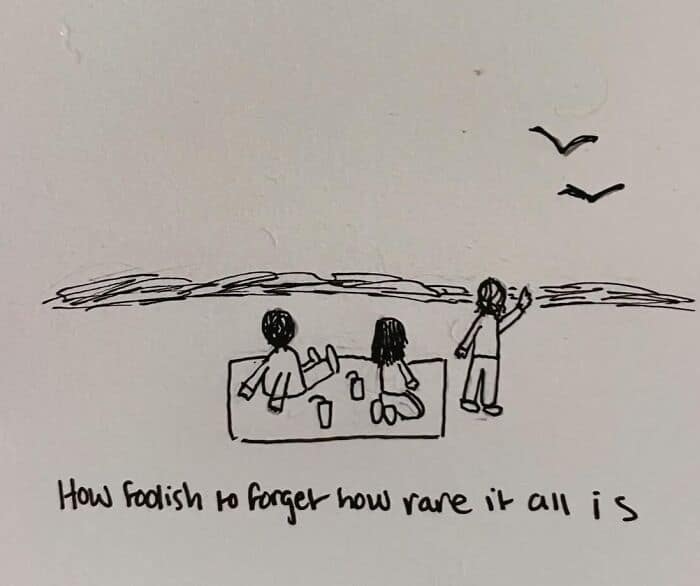 How foolish to forget how rare it all is